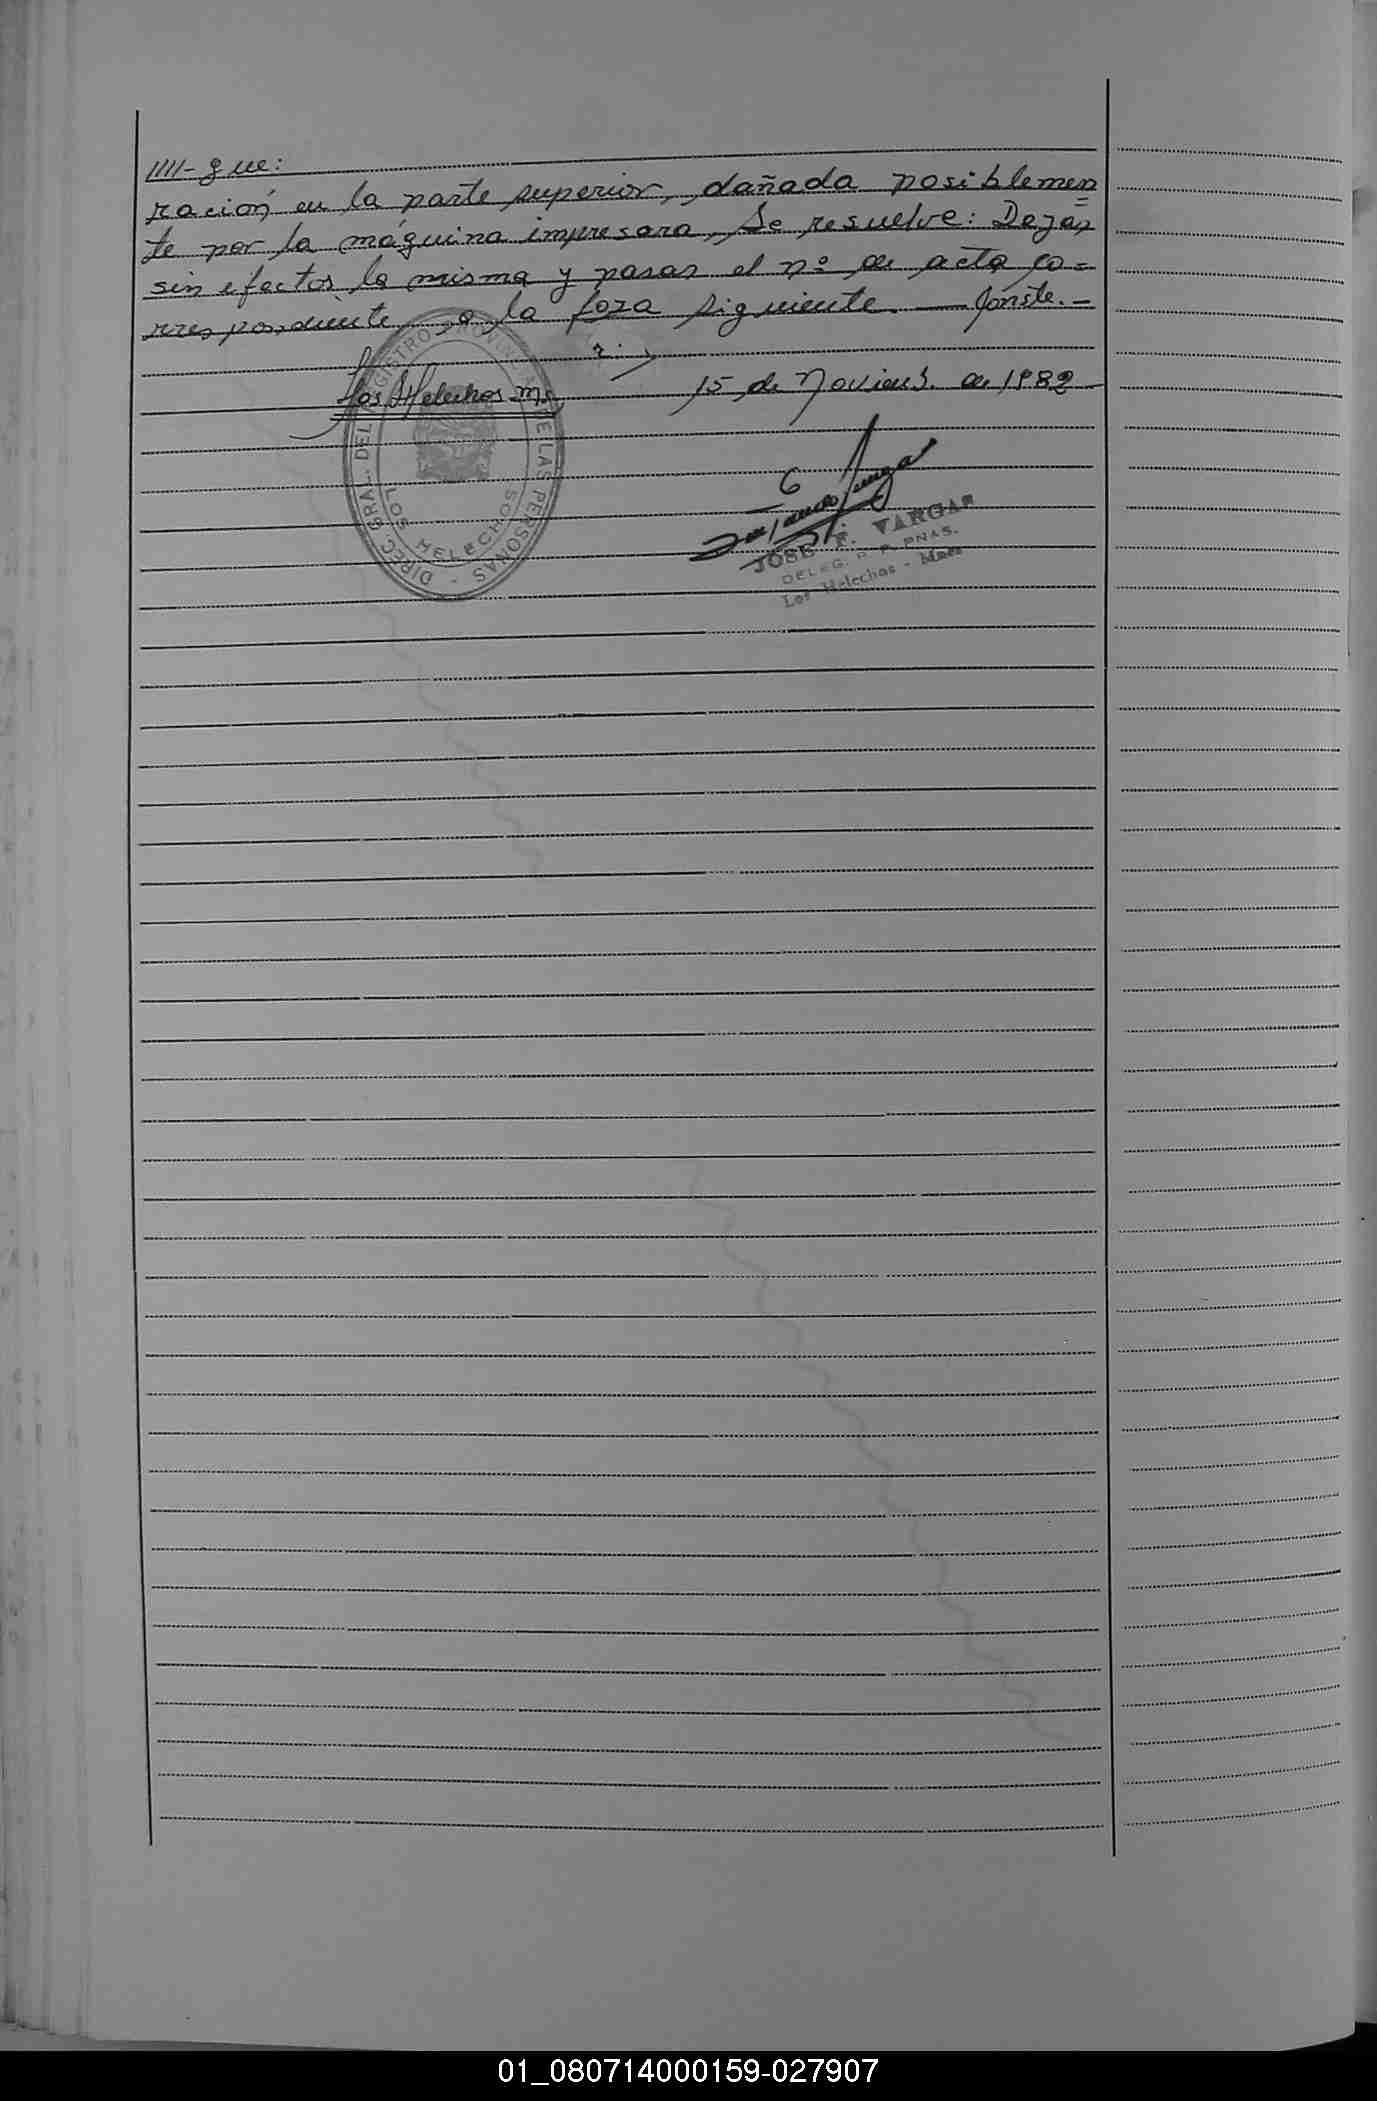 ////-que:
ración en la parte superior, dañada posiblemen=
te por la máquina impresora, Se resuelve: Dejar
sin efectos la misma y pasar el nº de acta co=
rrespondiente, a la foja siguiente. — Conste.-
Los Helechos Ms. 15 de Noviemb. de 1982
DIREC. GRAL. DEL REGISTRO PROVINC. DE LAS PERSONAS -
LOS HELECHOS
JOSE F. VARGAS
DELEG. R. P. PNAS.
Los Helechos - Mnes
01_080714000159-027907